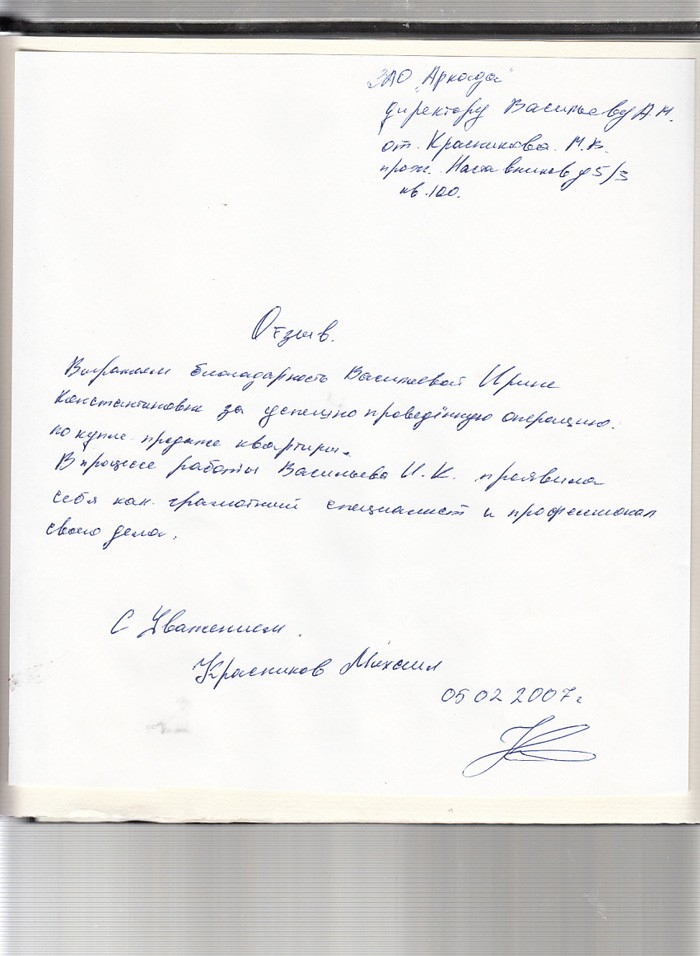 ЗАО „Аркада"
директору Васильеву А.Н.
от. Красникова. М.В.
прож. Наставников д 5/3
кв.100.
Отзыв.
Выражаем благодарность Васильевой Ирине
Константиновне за успешно проведённую операцию.
по купле-продаже квартиры.
В процессе работы Васильева И.К. проявила
себя как грамотный специалист и профессионал
своего дела.
С Уважением.
Красников Михаил
05 02 2007 г